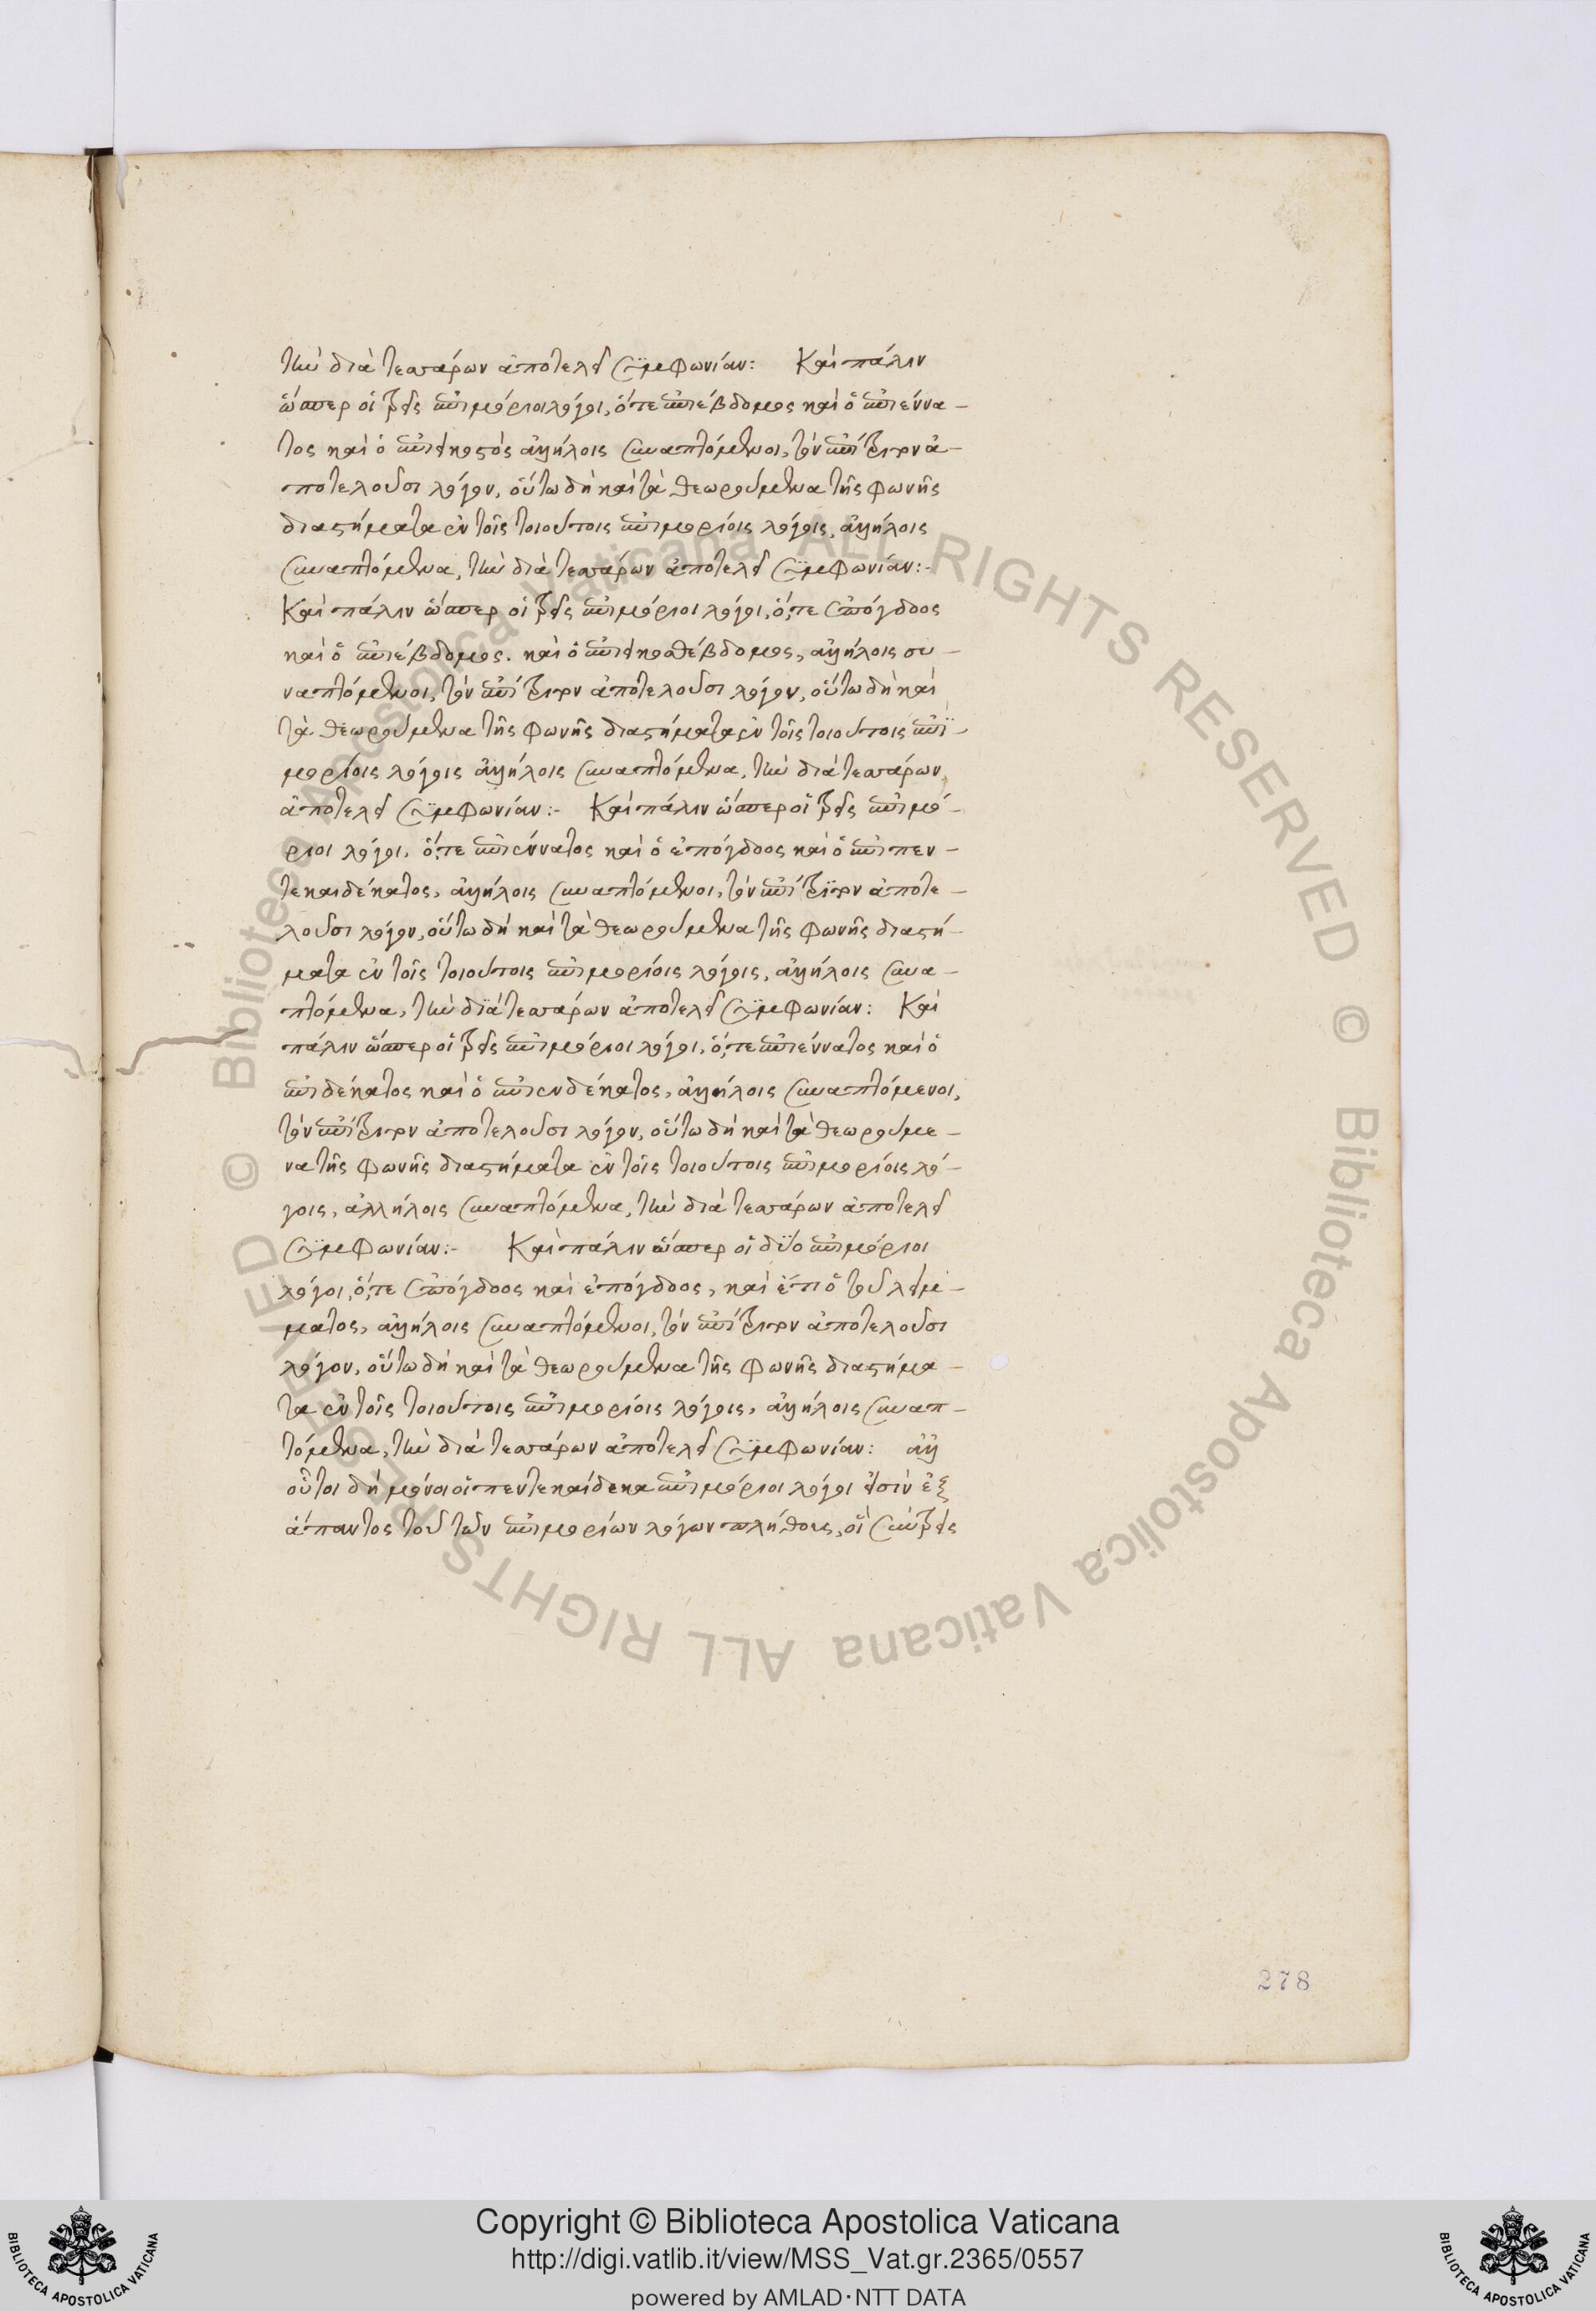 τὴν διὰ τεσσάρων ἀποτελεῖ συμφωνίαν: Καὶ πάλιν
ὥσπερ οἱ τρεῖς ἐπιμόριοι λόγοι, ὅ, τε ἐπιέβδομος καὶ ὁ ἐπιέννα-
τος καὶ ὁ ἐπιεικοστὸς ἀλλήλοις συναπτόμενοι, τὸν ἐπίτριτον ἀ-
ποτελοῦσι λόγον, οὕτω δὴ καὶ τὰ θεωρούμενα τῆς φωνῆς
διαστήματα ἐν τοῖς τοιούτοις ἐπιμορίοις λόγοις, ἀλλήλοις
συναπτόμενα, τὴν διὰ τεσσάρων ἀποτελεῖ συμφωνίαν:-
Καὶ πάλιν ὥσπερ οἱ τρεῖς ἐπιμόριοι λόγοι, ὅ, τε ἐπόγδοος
καὶ ὁ ἐπιέβδομος. καὶ ὁ ἐπιεικοσθέβδομος, ἀλλήλοις συ-
ναπτόμενοι, τὸν ἐπίτριτον ἀποτελοῦσι λόγον, οὕτω δὴ καὶ
τὰ θεωρούμενα τῆς φωνῆς διαστήματα ἐν τοῖς τοιούτοις ἐπι-
μορίοις λόγοις ἀλλήλοις συναπτόμενα, τὴν διὰ τεσσάρων
ἀποτελεῖ συμφωνίαν:- Καὶ πάλιν ὥσπερ οἱ τρεῖς ἐπιμό-
ριοι λόγοι, ὅ, τε ἐπιέννατος καὶ ὁ ἐπόγδοος καὶ ὁ ἐπιπεν-
τεκαιδέκατος, ἀλλήλοις συναπτόμενοι, τὸν ἐπίτριτον ἀποτε-
λοῦσι λόγον, οὕτω δὴ καὶ τὰ θεωρούμενα τῆς φωνῆς διαστή-
ματα ἐν τοῖς τοιούτοις ἐπιμορίοις λόγοις, ἀλλήλοις συνα-
πτόμενα, τὴν διὰ τεσσάρων ἀποτελεῖ συμφωνίαν: Καὶ
πάλιν ὥσπερ οἱ τρεῖς ἐπιμόριοι λόγοι, ὅ, τε ἐπιέννατος καὶ ὁ
ἐπιδέκατος καὶ ὁ ἐπιενδέκατος, ἀλλήλοις συναπτόμενοι,
τὸν ἐπίτριτον ἀποτελοῦσι λόγον, οὕτω δὴ καὶ τὰ θεωρούμε-
να τῆς φωνῆς διαστήματα ἐν τοῖς τοιούτοις ἐπιμορίοις λό-
γοις, ἀλλήλοις συναπτόμενα, τὴν διὰ τεσσάρων ἀποτελεῖ
συμφωνίαν:- Καὶ πάλιν ὥσπερ οἱ δύο ἐπιμόριοι
λόγοι, ὅ, τε ἐπόγδοος καὶ ἐπόγδοος, καὶ ἔτι ὁ τοῦ λείμ-
ματος, ἀλλήλοις συναπτόμενοι, τὸν ἐπίτριτον ἀποτελοῦσι
λόγον, οὕτω δὴ καὶ τὰ θεωρούμενα τῆς φωνῆς διαστήμα-
τα ἐν τοῖς τοιούτοις ἐπιμορίοις λόγοις, ἀλλήλοις συναπ-
τόμενα, τὴν διὰ τεσσάρων ἀποτελεῖ συμφωνίαν: ἀλλ'
οὗτοι δὴ μόνοι οἱ πεντεκαίδεκα ἐπιμόριοι λόγοι εἰσὶν ἐξ
ἅπαντος τοῦ τῶν ἐπιμορίων λόγων πλήθους, οἳ σὺν τρεῖς
278
© Biblioteca Apostolica Vaticana ALL RIGHTS RESERVED © Biblioteca Apostolica Vaticana ALL RIGHTS RESERVED
BIBLIOTECA APOSTOLICA VATICANA
Copyright © Biblioteca Apostolica Vaticana
http://digi.vatlib.it/view/MSS_Vat.gr.2365/0557
powered by AMLAD·NTT DATA
BIBLIOTECA APOSTOLICA VATICANA